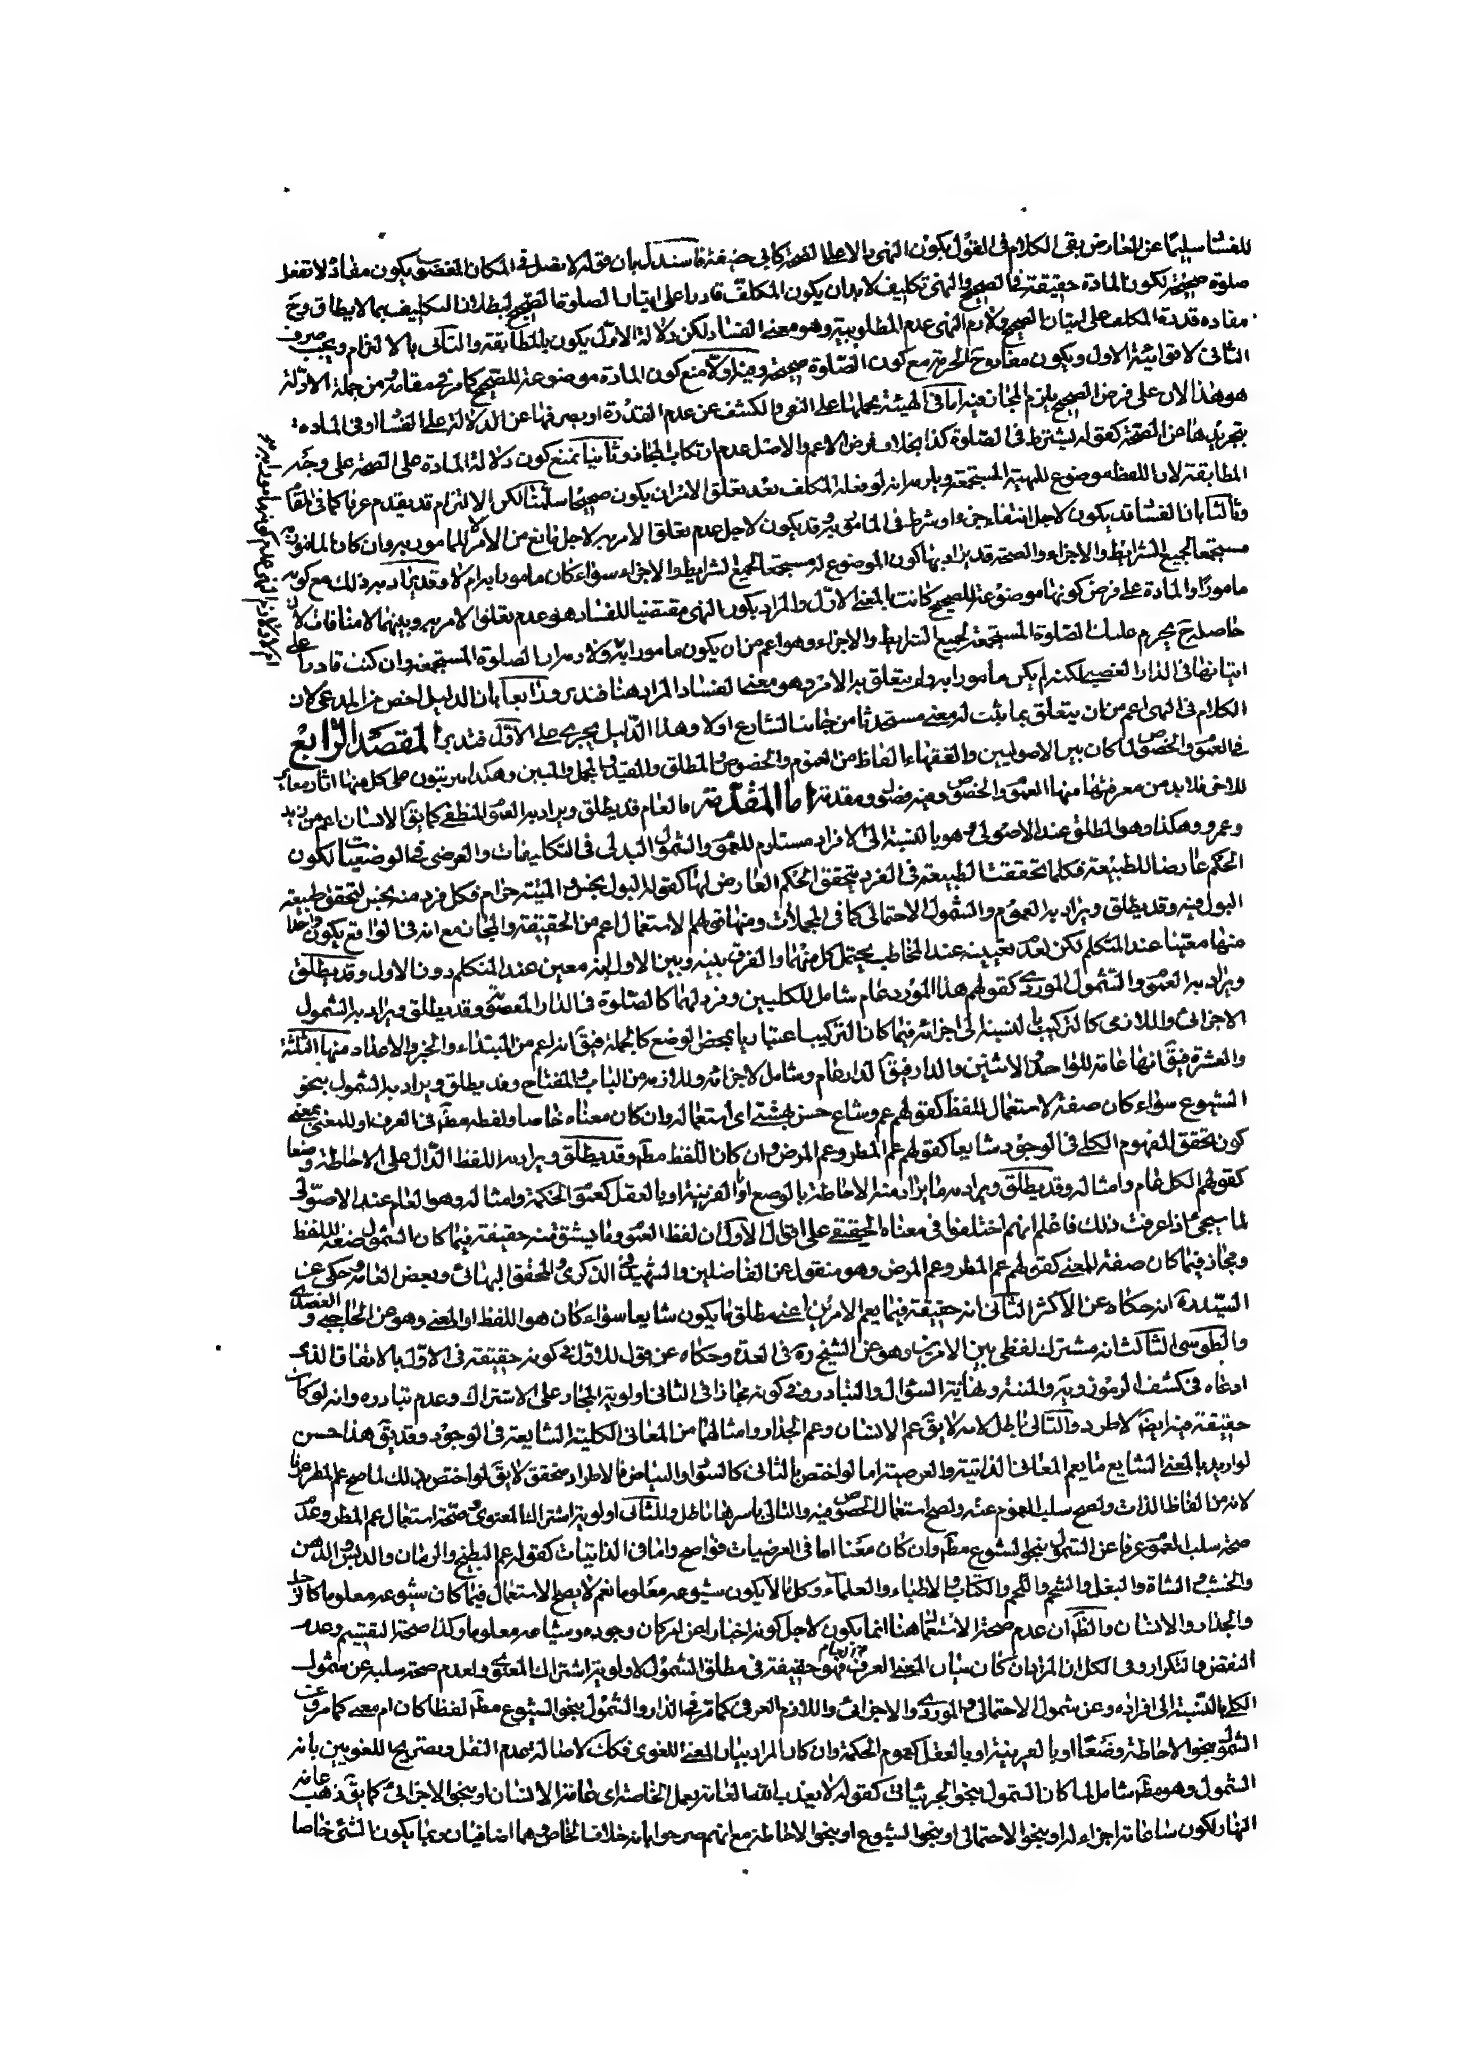 للفساد سليما عن المعارض بقى الكلام فى القول بكون النهى دالا على الصحة كابى حنيفة فاستدل بان قوله لا تصل فى المكان المغصوب يكون مفاده لا تفعل
صلوة صحيحة لكون المادة حقيقة فى الصحيح والنهى تكليف لابد ان يكون المكلف قادرا على اتيان الصلوة الصحيح لبطلان التكليف بما لا يطاق وح
مفاده قدرة المكلف على اتيان الصحيح ولازم النهى عدم المطلوبية وهو معنى الفساد لكن دلالة الاول يكون بالمطابقة والثانى بالالتزام ويجب صرف
الثانى لاقوائية الاول ويكون مفاده ح الحرمة مع كون الصلوة صحيحة وفيه اولا منع كون المادة موضوعة للصحيح كما مر فى مقامه من جملة الادلة
هو هذا لان على فرض الصحيح يلزم المجاز فيه اما فى الهيئة بحملها على النفى والكشف عن عدم القدرة او بصرفها عن الدلالة على الفساد او فى المادة
بتجريدها عن الصحة كقوله يشترط فى الصلوة كذا بخلاف فرض الاعم والاصل عدم ارتكاب المجاز وثانيا نمنع كون دلالة المادة على الصحة على وجه
المطابقة لان اللفظ موضوع للهيئة المستجمعة ويلزمه انه لو فعله المكلف بعد تعلق الامر ان يكون صحيحا سلمنا لكن الالتزام قد يقدم عرفا كما فى المقام
وثالثا بان الفساد قد يكون لاجل انتفاء جزء او شرط فى المامور به وقد يكون لاجل عدم تعلق الامر به لاجل مانع من الامر للمامور به وان كان المامور به
مستجمعا لجميع الشرايط والاجزاء والصحة قد يراد بها كون الموضوع له مستجمعا لجميع الشرايط والاجزاء سواء كان مامورا به ام لا وقد يراد به ذلك مع كونه
مامورا والمادة على فرض كونها موضوعة للصحيح كانت بالمعنى الاول والمراد بكون النهى مقتضيا للفساد هو عدم تعلق الامر به وبينهما لا منافات لان
حاصله ح يحرم عليك الصلوة المستجمعة لجميع الشرايط والاجزاء وهو اعم من ان يكون مامورا به ولازمه ان الصلوة المستجمعة وان كنت قادرا على
اتيانها فى الدار الغصبى لكنه لم يكن مامورا به ولم يتعلق به الامر وهو معنى الفساد المراد هنا فتدبر ورابعا بان الدليل اخص من المدعى لان
الكلام فى النهى اعم من ان يتعلق بما يثبت له معنى مستحدثا من جانب الشارع اولا وهذا الدليل يجرى على الاول فتدبر المقصد الرابع
فى العموم والخصوص لما كان بين الاصوليين والفقهاء الفاظ من العموم والخصوص والمطلق والمقيد والمجمل والمبين وهكذا يرتبون على كل منها اثارا مغايرا
للاخر فلابد من معرفتها منها العموم والخصوص وفيه فصول ومقدمة اما المقدمة فالعام قد يطلق ويراد به العموم المنطقى كما يق الانسان اعم من زيد
وعمرو وهكذا وهو المطلق عند الاصولى وهو بالنسبة الى الافراد مستلزم للعموم والشمول البدلى فى التكليفات والعرضى فى الوضعيات لكون
الحكم عارضا للطبيعة فكلما تحققت الطبيعة فى الفرد يتحقق الحكم العارض لها كقوله البول نجس والميتة حرام فكل فرد منه نجس لتحقق طبيعة
البول فيه وقد يطلق ويراد به العموم والشمول الاحتمالى كما فى المجملات ومنها قولهم الاستعمال اعم من الحقيقة والمجاز مع انه فى الواقع يكون واحدا
منها معينا عند المتكلم لكن لعدم تعيينه عند المخاطب يحتمل كل منهما والفرق بينه وبين الاول انه معين عند المتكلم دون الاول وقد يطلق
ويراد به العموم والشمول الموردى كقولهم هذا المورد عام شامل للكليين وفرد لهما كالصلوة فى الدار المغصوبة وقد يطلق ويراد به الشمول
الاجزائى واللازمى كالتركيب بالنسبة الى اجزائه فيما كان التركيب اعتباريا بمحض الوضع كالجملة فيق انه اعم من المبتداء والخبر والاعداد منها الثلثة
والعشرة فيق انها عامة للواحد والاثنين والدار فيق الدار عام وشامل لاجزائه ولازمه من الباب والمفتاح وقد يطلق ويراد به الشمول بنحو
الشيوع سواء كان صفة لاستعمال اللفظ كقولهم عم وشاع حسن بهشتى اى استعماله وان كان معناه خاصا ولفظه مط فى العرف او للمعنى بمعنى
كون تحقق المفهوم الكلى فى الوجود شايعا كقولهم عم المطر وعم المرض وان كان اللفظ مط وقد يطلق ويراد به اللفظ الدال على الاحاطة وضعا
كقولهم الكل عام وامثاله وقد يطلق ويراد به ما يراد منه الاحاطة بالوضع او بالقرينة او بالعقل كعموم الحكمة وامثاله وهو العام عند الاصولى
لما سيجئ اذا عرفت ذلك فاعلم انهم اختلفوا فى معناه الحقيقى على اقوال الاول ان لفظ العموم وما يشتق منه حقيقة فيما كان الشمول صفة للفظ
ومجاز فيما كان صفة للمعنى كقولهم عم المطر وعم المرض وهو منقول عن الفاضلين والشهيد فى الذكرى والمحقق البهائى وبعض العامة وحكى عن
السيد ره انه حكاه عن الاكثر الثانى انه حقيقة فيما يعم الامرين اعنى مطلق ما يكون شايعا سواء كان هو اللفظ او المعنى وهو عن الحاجبى والعضدى
والطوسى الثالث انه مشترك لفظى بين الامرين وهو عن الشيخ ره فى العدة وحكاه عن قول للاول فى كونه حقيقة فى الاول بالاتفاق الذى
ادعاه فى كشف الرموز وية والمنية ونهاية السؤال والتبادر وفى كونه مجازا فى الثانى اولوية المجاز على الاشتراك وعدم تبادره وانه لو كان
حقيقة فيه ايضا لاطرد والتالى باطل لانه لا يق عم الانسان وعم الجدار وامثالهما من المعانى الكلية الشايعة فى الوجود وقد يق هذا حسن
لو اريد بالمعنى الشايع ما يعم المعانى الذاتية والعرضية اما لو اختص بالثانى كالسواد والبياض فالاطراد متحقق لا يق لو اختص بذلك لما صح عم المطر عرفا
لانه من الفاظ الذات ولصح سلب العموم عنه ولصح استعمال الخصوص فيه والتالى باسرها باطل وللثانى اولوية اشتراك المعنوى وصحة استعمال عم المطر وعدم
صحة سلب العموم عرفا عن الشمول بنحو الشيوع مط وان كان معنا اما فى العرضيات فواضح واما فى الذاتيات كقوله عم البطيخ والرمان والدبس والدهن
والخشب والشاة والبغل والشحم واللحم والكتاب والاطباء والعلماء وكل مالا يكون شيوعه معلوما نعم لا يصح الاستعمال فيما كان شيوعه معلوما كالرجل
والجدار والانسان والظ ان عدم صحة الاستعمال هنا انما يكون لاجل كونه اخبارا عن امر كان وجوده وشياعه معلوما وكذا صحة التقسيم وعدم
النقض والتكرار وفى الكل ان المراد ان كان بيان المعنى العرفى فهو حقيقة فى مطلق الشمول لاولوية اشتراك المعنوى ولعدم صحة سلبه عن شمول
الكلى بالنسبة الى افراده وعن شمول الاحتمالى والموردى والاجزائى واللازم العرفى كما مر فى الدار والشمول بنحو الشيوع مط لفظا كان ام معنى كما مر وعن
الشمول بنحو الاحاطة وضعا او بالقرينة او بالعقل كعموم الحكمة وان كان المراد بيان المعنى اللغوى فكك لاصالة عدم النقل وتصريح اللغويين بانه
الشمول وهو مط شامل لما كان الشمول بنحو الجزئيات كقوله لا يعذب الله العامة بعمل الخاصة اى عامة الانسان او بنحو الاجزائى كما يق ذهب عامة
النهار لكون ساعاته اجزاء له او بنحو الاحتمالى او بنحو الشيوع او بنحو الاحاطة مع انهم صرحوا بانه خلاف الخاص وهما اضافيان وربما يكون الشئ خاصا